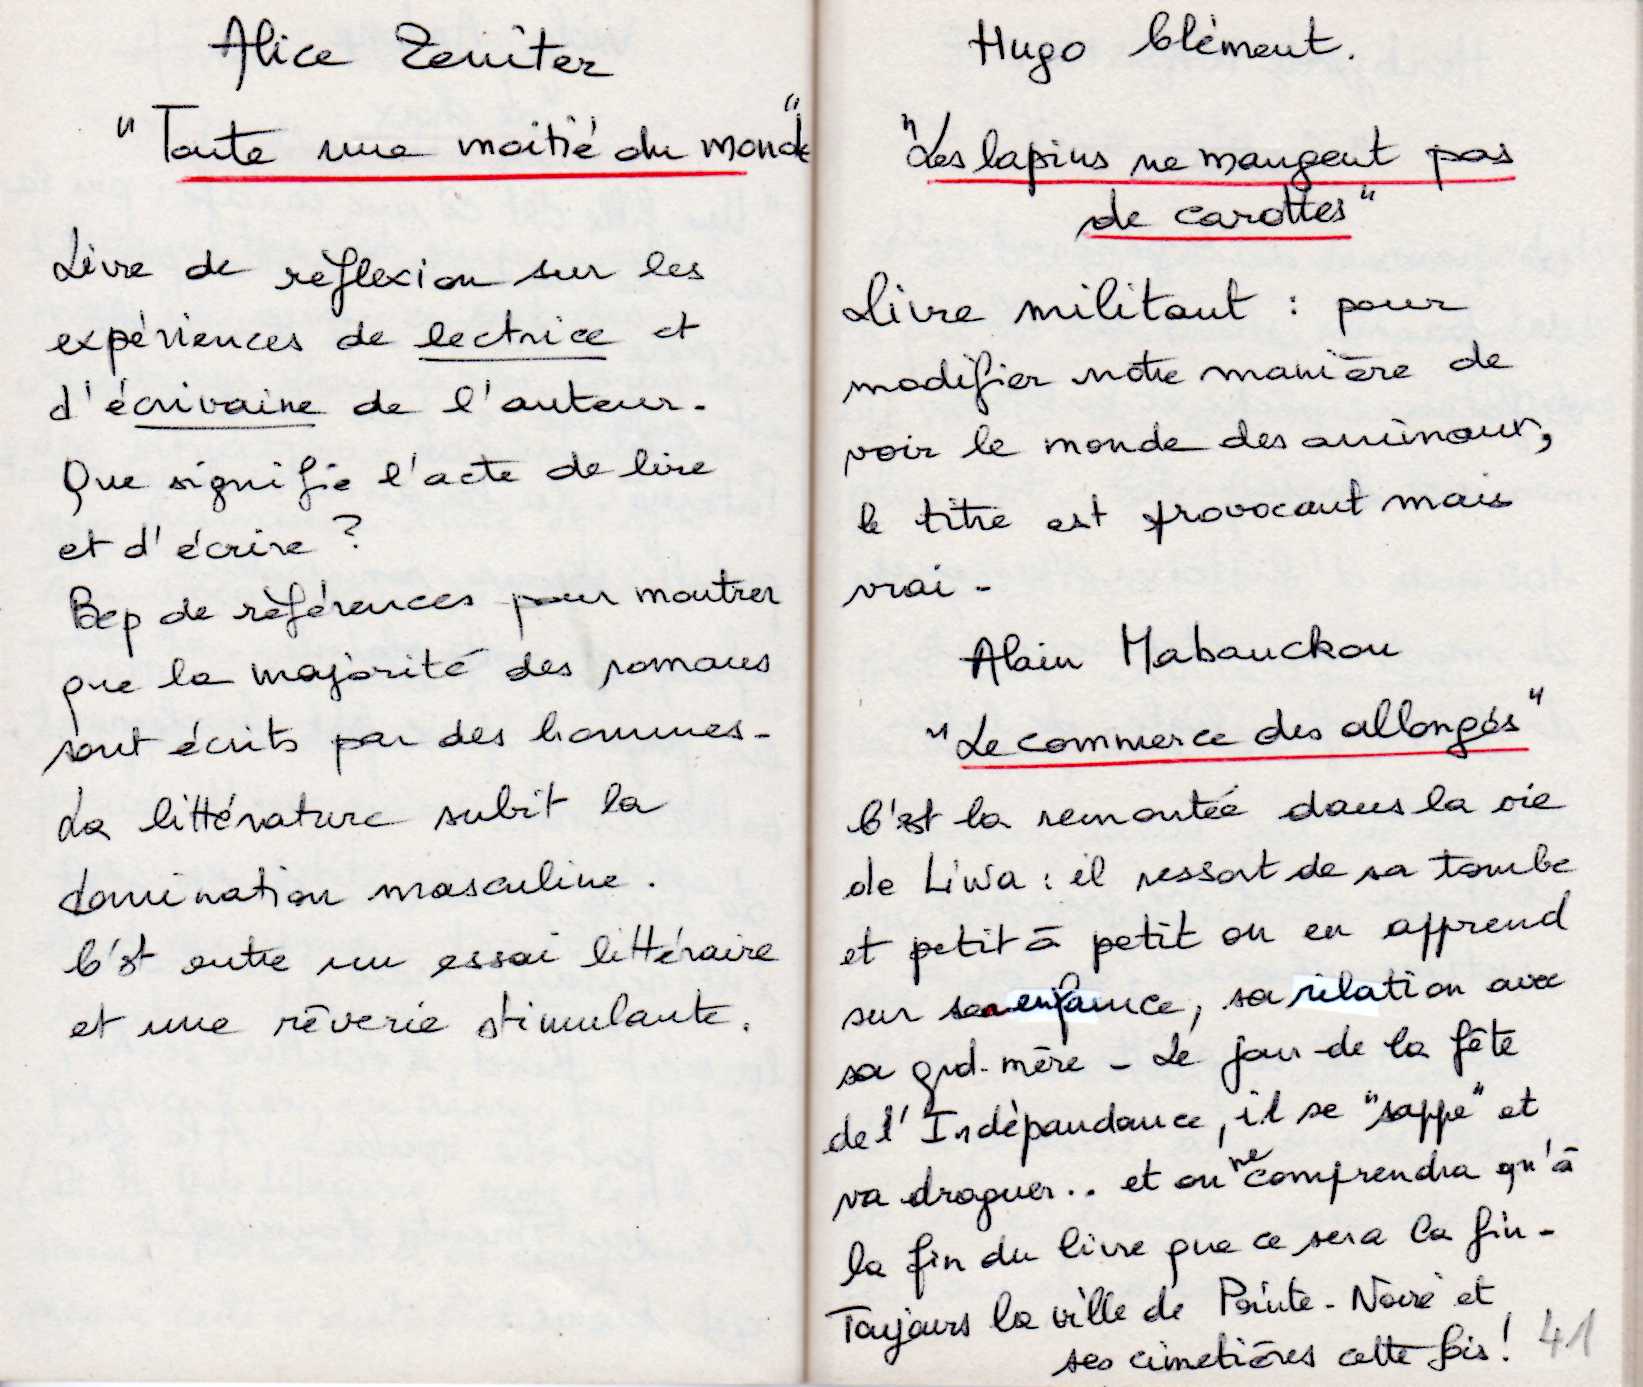 Alice Zeniter
"Toute une moitié du monde"
Livre de réflexion sur les
expériences de lectrice et
d'écrivaine de l'auteur.
Que signifie l'acte de lire
et d'écrire ?
Bcp de références pour montrer
que la majorité des romans
sont écrits par des hommes -
La littérature subit la
domination masculine.
C'est entre un essai littéraire
et une rêverie stimulante.
Hugo Clément.
"Les lapins ne mangent pas
de carottes"
Livre militant : pour
modifier notre manière de
voir le monde des animaux,
le titre est provocant mais
vrai -
Alain Mabanckou
"Le commerce des allongés"
C'est la remontée dans la vie
de Liwa : il ressort de sa tombe
et petit à petit on en apprend
sur son enfance, sa relation avec
sa gd-mère - Le jour de la fête
de l'Indépandance, il se "sappe" et
va draguer.. et on ne comprendra qu'à
la fin du livre que ce sera la fin -
Toujours la ville de Pointe-Noire et
ses cimetières cette fois !
41